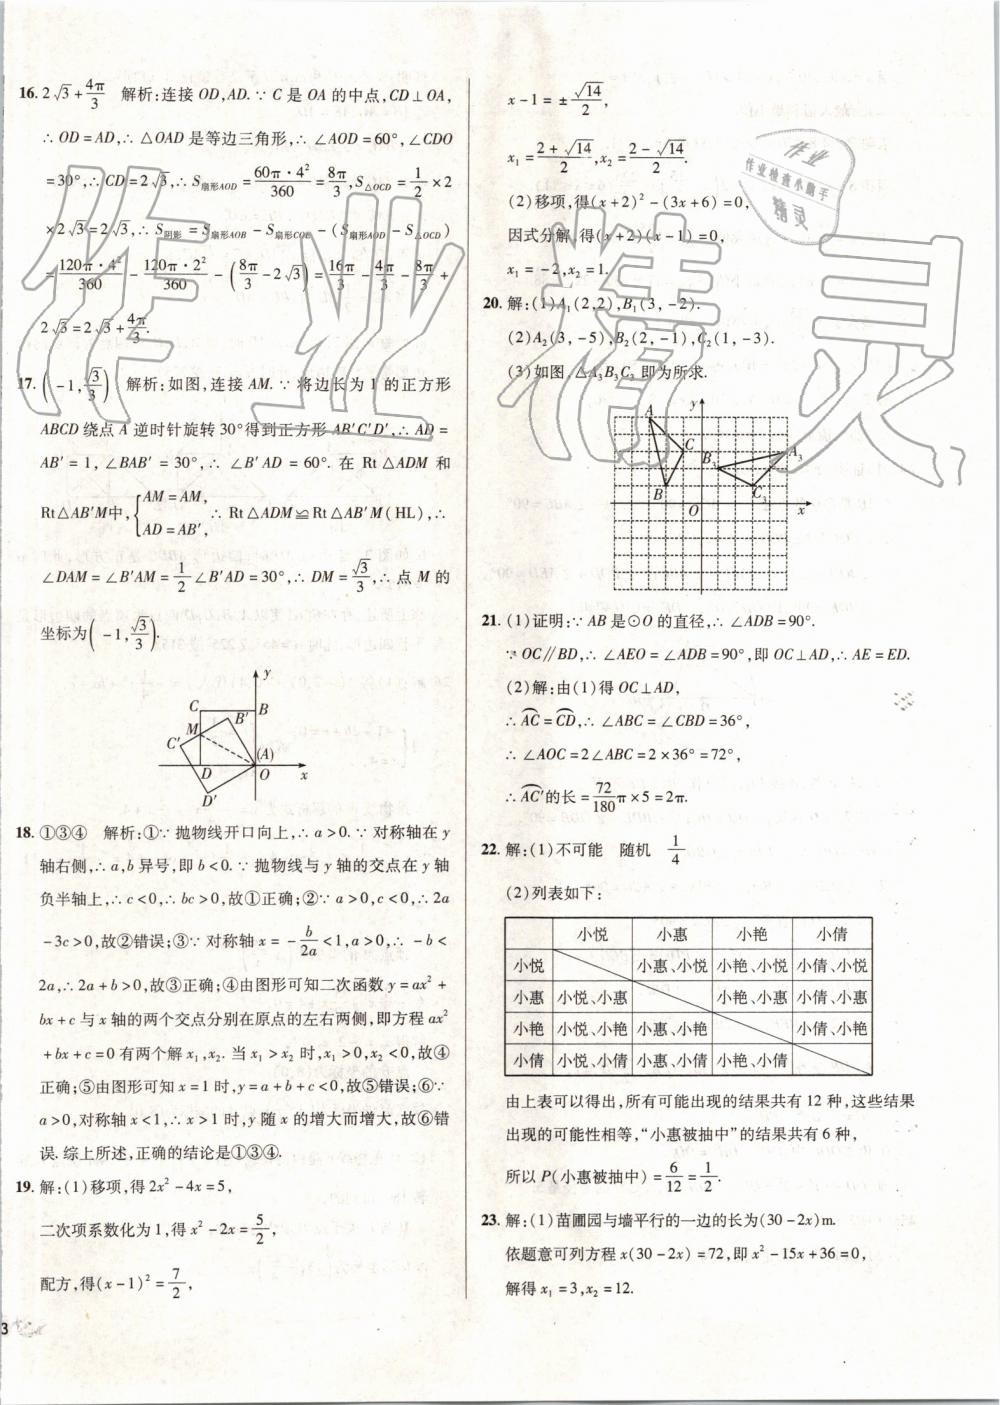 16. 2√3+4π/3 解析:连接 OD,AD.∵C 是 OA 的中点,CD⊥OA,
∴OD=AD,∴△OAD 是等边三角形,∴∠AOD=60°,∠CDO
=30°,∴CD=2√3,∴S扇形AOD=60π·4²/360=8π/3,S△OCD=1/2×2
×2√3=2√3,∴S阴影=S扇形AOB-S扇形COE-(S扇形AOD-S△OCD)
=120π·4²/360-120π·2²/360-(8π/3-2√3)=16π/3-4π/3-8π/3+
2√3=2√3+4π/3.
17. (-1,√3/3) 解析:如图,连接 AM.∵将边长为 1 的正方形
ABCD 绕点 A 逆时针旋转 30°得到正方形 AB'C'D',∴AD=
AB'=1,∠BAB'=30°,∴∠B'AD=60°.在 Rt△ADM 和
Rt△AB'M中,{AM=AM, AD=AB', ∴Rt△ADM≌Rt△AB'M(HL),∴
∠DAM=∠B'AM=1/2∠B'AD=30°,∴DM=√3/3,∴点 M 的
坐标为(-1,√3/3).
y
C B
B'
M
C'
(A)
D O x
D'
18. ①③④ 解析:①∵抛物线开口向上,∴a>0.∵对称轴在 y
轴右侧,∴a,b 异号,即 b<0.∵抛物线与 y 轴的交点在 y 轴
负半轴上,∴c<0,∴bc>0,故①正确;②∵a>0,c<0,∴2a
-3c>0,故②错误;③∵对称轴 x=-b/2a<1,a>0,∴-b<
2a,∴2a+b>0,故③正确;④由图形可知二次函数 y=ax²+
bx+c 与 x 轴的两个交点分别在原点的左右两侧,即方程 ax²
+bx+c=0 有两个解 x₁,x₂.当 x₁>x₂ 时,x₁>0,x₂<0,故④
正确;⑤由图形可知 x=1 时,y=a+b+c<0,故⑤错误;⑥∵
a>0,对称轴 x<1,∴x>1 时,y 随 x 的增大而增大,故⑥错
误.综上所述,正确的结论是①③④.
19. 解:(1)移项,得 2x²-4x=5,
二次项系数化为 1,得 x²-2x=5/2,
配方,得(x-1)²=7/2,
3
x-1=±√14/2,
x₁=(2+√14)/2,x₂=(2-√14)/2.
(2)移项,得(x+2)²-(3x+6)=0,
因式分解,得(x+2)(x-1)=0,
x₁=-2,x₂=1.
20. 解:(1)A₁(2,2),B₁(3,-2).
(2)A₂(3,-5),B₂(2,-1),C₂(1,-3).
(3)如图,△A₃B₃C₃ 即为所求.
y
A
C B₃ A₃
B C₃
O x
21. (1)证明:∵AB 是⊙O 的直径,∴∠ADB=90°.
∵OC∥BD,∴∠AEO=∠ADB=90°,即 OC⊥AD,∴AE=ED.
(2)解:由(1)得 OC⊥AD,
∴A͡C=C͡D,∴∠ABC=∠CBD=36°,
∴∠AOC=2∠ABC=2×36°=72°,
∴A͡C'的长=72/180π×5=2π.
22. 解:(1)不可能 随机 1/4
(2)列表如下:
小悦 小惠 小艳 小倩
小悦 小惠、小悦 小艳、小悦 小倩、小悦
小惠 小悦、小惠 小艳、小惠 小倩、小惠
小艳 小悦、小艳 小惠、小艳 小倩、小艳
小倩 小悦、小倩 小惠、小倩 小艳、小倩
由上表可以得出,所有可能出现的结果共有 12 种,这些结果
出现的可能性相等,“小惠被抽中”的结果共有 6 种,
所以 P(小惠被抽中)=6/12=1/2.
23. 解:(1)苗圃园与墙平行的一边的长为(30-2x)m.
依题意可列方程 x(30-2x)=72,即 x²-15x+36=0,
解得 x₁=3,x₂=12.
作业
作业检查小助手
精灵
作业精灵